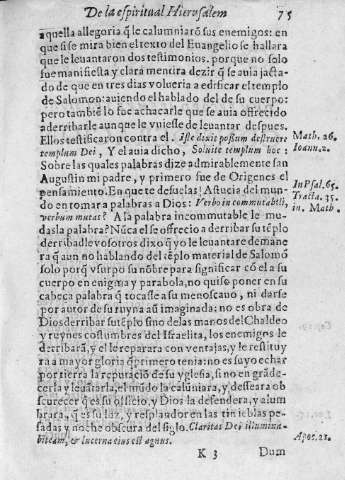 De la espiritual Hierusalem 75
aquella allegoria q̃ le calumniarõ sus enemigos: en
que si se mira bien el texto del Euangelio se hallara
que le leuantaron dos testimonios. porque no solo
fue manifiesta y clara mentira dezir q̃ se auia jacta-
do de que en tres dias volueria a edificar el templo
de Salomon: auiendo el hablado del de su cuerpo:
pero tambiẽ lo fue achacarle que se auia offrecido
a derribarle aunque le vuiesse de leuantar despues.
Ellos testificaron contra el. Iste dixit possum destruere
Math. 26.
templum Dei, Y el auia dicho, Soluite templum hoc:
Ioann. 2.
Sobre las quales palabras dize admirablemente san
Augustin mi padre, y primero fue de Origenes el
pensamiento. En que te desuelas! Astucia del mun-
In Psal. 65.
do en tomar a palabras a Dios: Verbo incommutabili,
Tracta. 35.
verbum mutas? A la palabra incommutable le mu-
in. Math.
das la palabra? Nũca el se offrecio a derribar su tẽplo
derribadle vosotros dixo q̃ yo le leuantare de mane
ra q̃ aun no hablando del tẽplo material de Salomõ
solo porq̃ vsurpo su nõbre para significar cõ el a su
cuerpo en enigma y parabola, no quiso poner en su
cabeça palabra q̃ tocasse a su menoscauo, ni darse
por autor de su ruyna aũ imaginada: no es obra de
Dios derribar su tẽplo sino de las manos del Chaldeo
y reynes costumbres del Israelita, los enemigos le
derribarã, y el le reparara con ventajas, y le restituy
ra a mayor gloria q̃ primero tenia: no es suyo echar
por tierra la reputaciõ de su yglesia, si no engrãde-
cerla y leuãtarla, el mũdo la calũniara, y desseara ob
scurecer q̃ es su officio, y Dios la defendera, y alum
brara, q̃ es su luz, y resplandor en las tinieblas pe-
sadas y noche obscura del siglo. Claritas Dei illumina-
bit eam, & lucerna eius est agnus.
Apoc. 21.
K 3 Dum